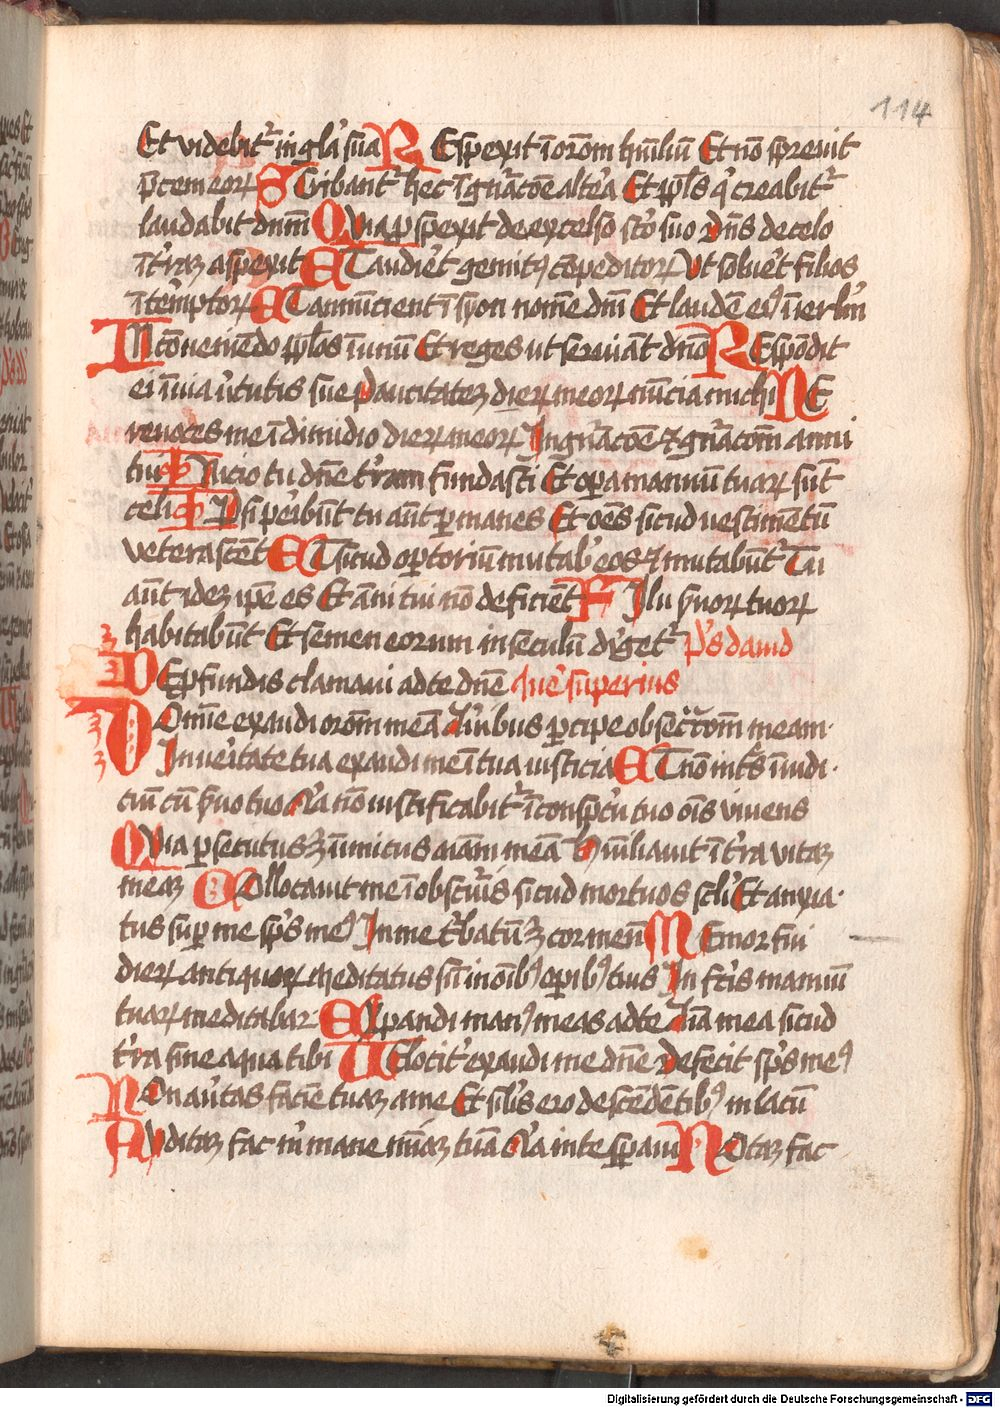 114
Et videbit᷑ in gl̄a sua REspexit ī or̄om hūiliū Et nō sprevit
p̄cem eoꝝ SCribant᷑ hec ī gn̄acōe alt̉a Et ppl̄s q̇ creabit᷑
laudabit dnm̄ QVia ꝓspexit de excelso sc̄o suo Dn̄s de celo
ī t̉raꝫ aspexit ETaudiret gemitꝰ cōpeditoꝝ Vt solủet filios
īt̉emptoꝝ ETannūcient ī syon nomē dn̄i Et laudē eiꝰ ī ierl̄m
IN cōveniēdo ppl̄os ī unū Et reges ut serviāt dn̄o REspōdit
ei ī via v̉tutis sue Paucitateꝫ dieꝝ meoꝝ nūcia michi NE
revoces me ī dimidio dieꝝ meoꝝ In gn̄acōe ⁊ gn̄acōm anni
tui INicio tu dn̄e t̉ram fundasti Et opa manuū tuaꝝ sūt
celi IPsi pẻibūt tu aūt ꝑmanes Et oēs sicud vestimētū
veterascēt ETsicud op̄toriū mutab̉ eos ⁊ mutabūt᷑ Tu
aūt ideꝫ ipē es Et āni tui nō deficiēt FIlii s̉voꝝ tuoꝝ
habitabūt Et semen eorum in seculū dỉget᷑ Ps̄ david
DE ꝓfundis clamavi ad te dn̄e Quẻ superius
DOmīe exaudi or̄om meā Aurib̉us ꝑcipe obsecr̄com̄ meam·
In vẻitate tua exaudi me ī tua iusticia ETnō int̉s ī iudi·
ciū cū s̉vo tuo Q̄a nō iustificabit᷑ ī cōspc̄u tuo oīs vivens
QVia ꝑsecutus ꝫ īimicus aīam meā Hūiliavit ī t̉ra vitaꝫ
meaꝫ COllocavit me ī obscủis sicud mortuos scl̄i Et anxia·
tus suꝑ me spūs meꝰ In me t̉batū ꝫ cor meū MEmor fui
dieꝝ antiquoꝝ meditatus sū in oīibꝰ opibꝰ tuis In fc̄is manuū
tuaꝝ meditabar EXpandi manꝰ meas ad te Aīa mea sicud
t̉ra sine aqua tibi VElocit̉ exaudi me dn̄e Defecit spūs meꝰ
NOn av̉tas faciē tuaꝫ a me Et sil̄is ero descēdētibꝰ in lacū
AVditaꝫ fac m̄ mane mīaꝫ tuā Q̄a in te spavi NOtaꝫ fac
Digitalisierung gefördert durch die Deutsche Forschungsgemeinschaft - DFG